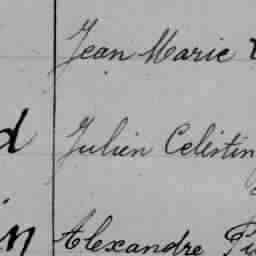 Jean Marie
Julien Celestin
Alexandre